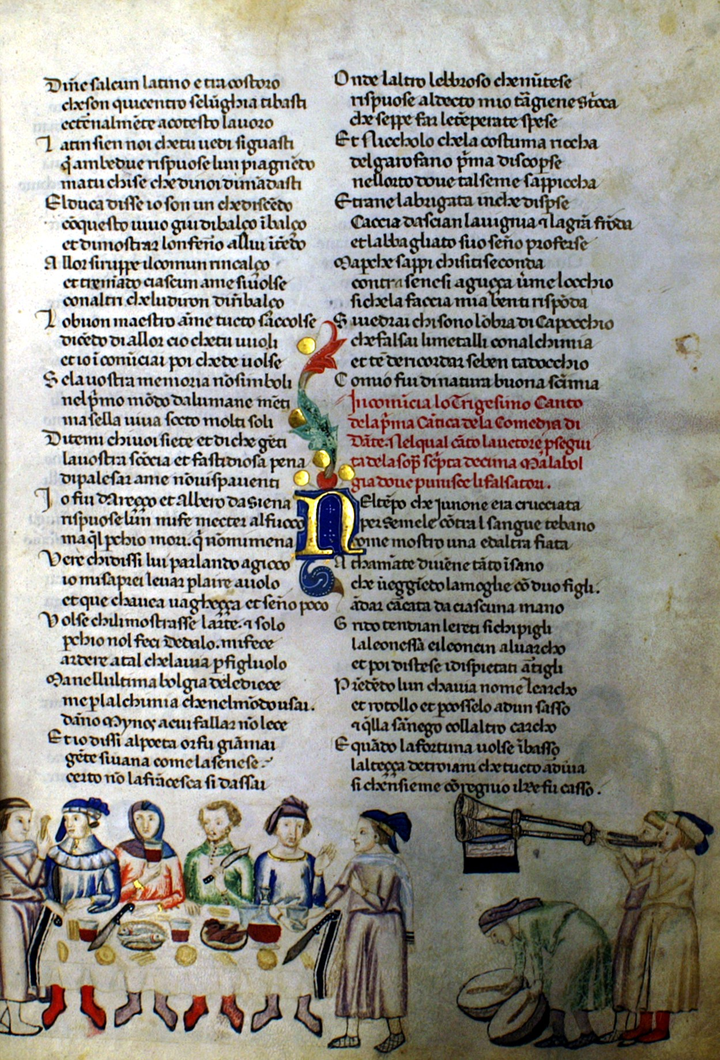 Dim̄e salcun latino e tra costoro
che son quicentro selūghia ti basti
ect̄nalm̄ete acotesto lauoro
Latin sien noi che tu uedi si guasti
q̄ ambedue rispuose lun piagnēdo
ma tu chi se che di noi dimādasti
El duca disse io son un che discēdo
cō questo uiuo giu di balço ībalço
et di mostrar lonferno allui ītēdo
Allor si ruppe il comun rincalço
et tremādo ciascun ame si uolse
con altri che ludiron di rībalço
Lo buon maestro ame tucto saccolse
dicēdo di allor cio che tu uuoli
et io īcomīciai poi che de uolse
Se la uostra memoria nō simboli
nel pīmo mōdo dalumane mēti
ma sella uiua socto molti soli
Ditemi chi uoi siete et di che gēti
la uostra scōcia et fastidiosa pena
di palesar ame nōui spauenti
Io fui dareçço et albero da siena
rispuose lun mi fe mecter al fuoco
ma q̄l pchio mori. q̄ nō mi mena
Vere chi dissi lui parlando agioco
io mi saprei leuar p laire auolo
et que chauea uagheçça et seño poco
Volse chi li mostrasse larte. & solo
pchio nol feci dedalo. mi fece
ardere atal che lauia p figluolo
Ma nellultima bolgia dele diece
me p lalchimia che nel mōdo usai.
dāno Mynos acui fallar nō lece
Et io dissi al poeta or fu giāmai
gēte si uana come la senese
certo nō la francesca si dassai
Onde laltro lebbroso che mītese
rispuose al decto mio tāgiene stricca
che seppe far le tēperate spese
Et Niccholo che la costuma riccha
del garofano p̄ma discoperse
nellorto doue tal seme sappiccha
E trane la brigata in che disperse
Caccia dascian la uigna & la grā fronda
et labbagliato suo seño proferse
Ma pche sappi chi si ti seconda
contra senesi aguçça īuer me locchio
si che la faccia mia ben ti rispōda
Si uedrai chi sono lōbra di Capocchio
che falsai li metalli con alchimia
et te dē ricordar se ben tadocchio
Comio fui di natura buona scīmia
Incomīcia lo Trigesimo Canto
dela p̄ma Cātica dela Comedia di
Dāte. Nel qual cāto lauctore p̄segui
ta dela sop̄ scp̄ta decima Malabol
gia doue punisce li falsatori.
Nel tēpo che Junone era crucciata
per Semele cōtra l sangue tebano
come mostro una ed altra fiata
Athamāte diuēne tāto īsano
che ueggiēdo la moglie cō duo figli.
ādar carcata da ciascuna mano
Grido tendian le reti si chi pigli
la leonessa e i leoncin al uarcho
et poi distese i dispietati artigli
Prēdēdo lun chauia nome learcho
et rotollo et pcosselo ad un sasso
& q̄lla sānego collaltro carcho
E quādo la fortuna uolse ībasso
lalteçça de troiani che tucto ardiua
si che nsieme col regno il re fu casso.